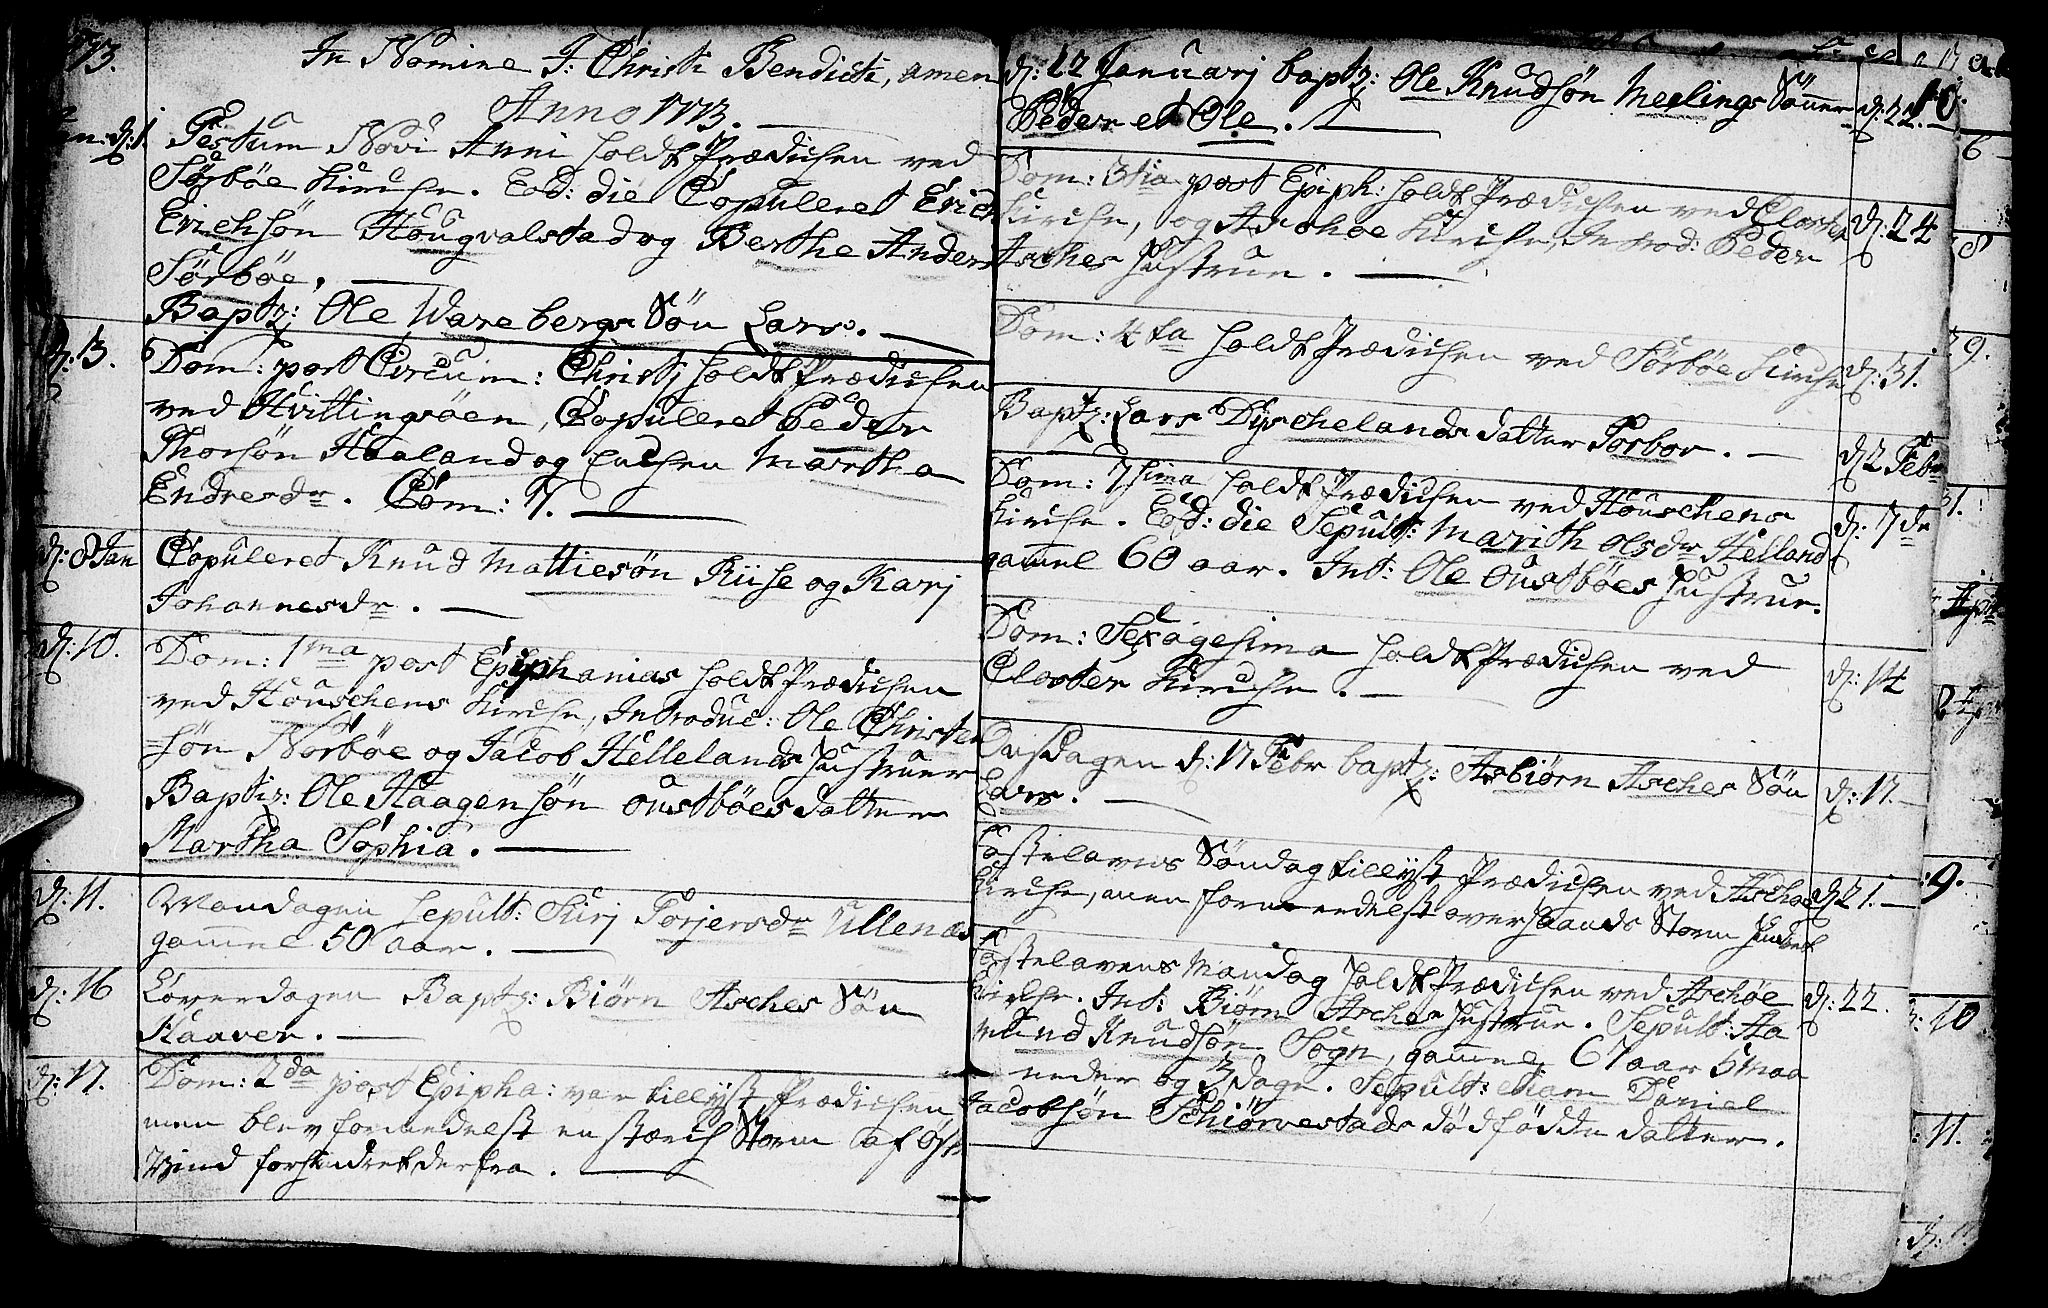 1773.
In Nomine J: Christi Bendicti, amen
Anno 1773.
Jan: d: 1. Festum Novi Anni holdt Prædichen ved
Sørbøe Kirche. Eod: die Copuleret Erich
Erichsøn Hougvalstad og Berthe Anders
Sørbøe.
Baptz: Ole Warebergs Søn Lars.
d: 3. Dom: post Circum: Christj holdt Prædichen
ved Hvittingsøen, Copuleret Peder
Thorsøn Haaland og Enchen Martha
Endresdr. Com: 7.
d: 8 Jan Copuleret Knud Mattiesøn Riise og Karj
Johannesdr.
d: 10. Dom: 1ma post Epiphanias holdt Prædichen
ved Houschens Kirche, Introduc: Ole Christen
søn Norbøe og Jacob Hellelands Hustruer
Baptiz: Ole Haagensøn Oustbøes datter
Martha Sophia.
d: 11. Mandagen Sepult: Surj Torjersdr Ullenæs
gammel 50 aar.
d: 16 Løverdagen Baptz: Biørn Asches Søn
Haaver.
d: 17. Dom: 2da post Epipha: var tillyst Prædichen
men blev formedelst en stærch Storm af Øst
Vind forhindret derfra.
d: 22 Januarj baptz: Ole Knudsøn Meelings Sønner
Peder et Ole. d: 22.
Dom: 3tia post Epiph: holdt Prædichen ved Closter
Kirche, og Aschøe Kirche, Introd: Peder
Asches Hustrue. d: 24
Dom: 4ta holdt Prædichen ved Sørbøe Kirche d: 31.
Baptz: Lars Dyschelands datter Torbor. d: 2 Febr
Dom: 7sima holdt Prædichen ved Houschens
Kirche. Eod: die Sepult: Marith Olsdr Helland d: 7de
gammel 60 aar. Int: Ole Oustbøes Hustrue.
Dom: Sexagesima holdt Prædichen ved
Closter Kirche. d: 14
Onsdagen d: 17 Febr baptz: Asbiørn Asches Søn
Lars. d: 17.
Fastelavns Søndag tillyst Prædichen ved Aschøe d: 21.
Kirche, men formedelst overhaands Storm hindret
Fastelavens Mandag holdt Prædichen ved Aschøe
Kirche. Int: Biørn Asches Hustrue. Sepult: Aa d: 22.
mund Knudsøn Sogn, gammel 67 aar 5 maa
neder og 3 dage. Sepult: etiam Daniel
Jacobsøn Schiørvestads dødfødde datter.